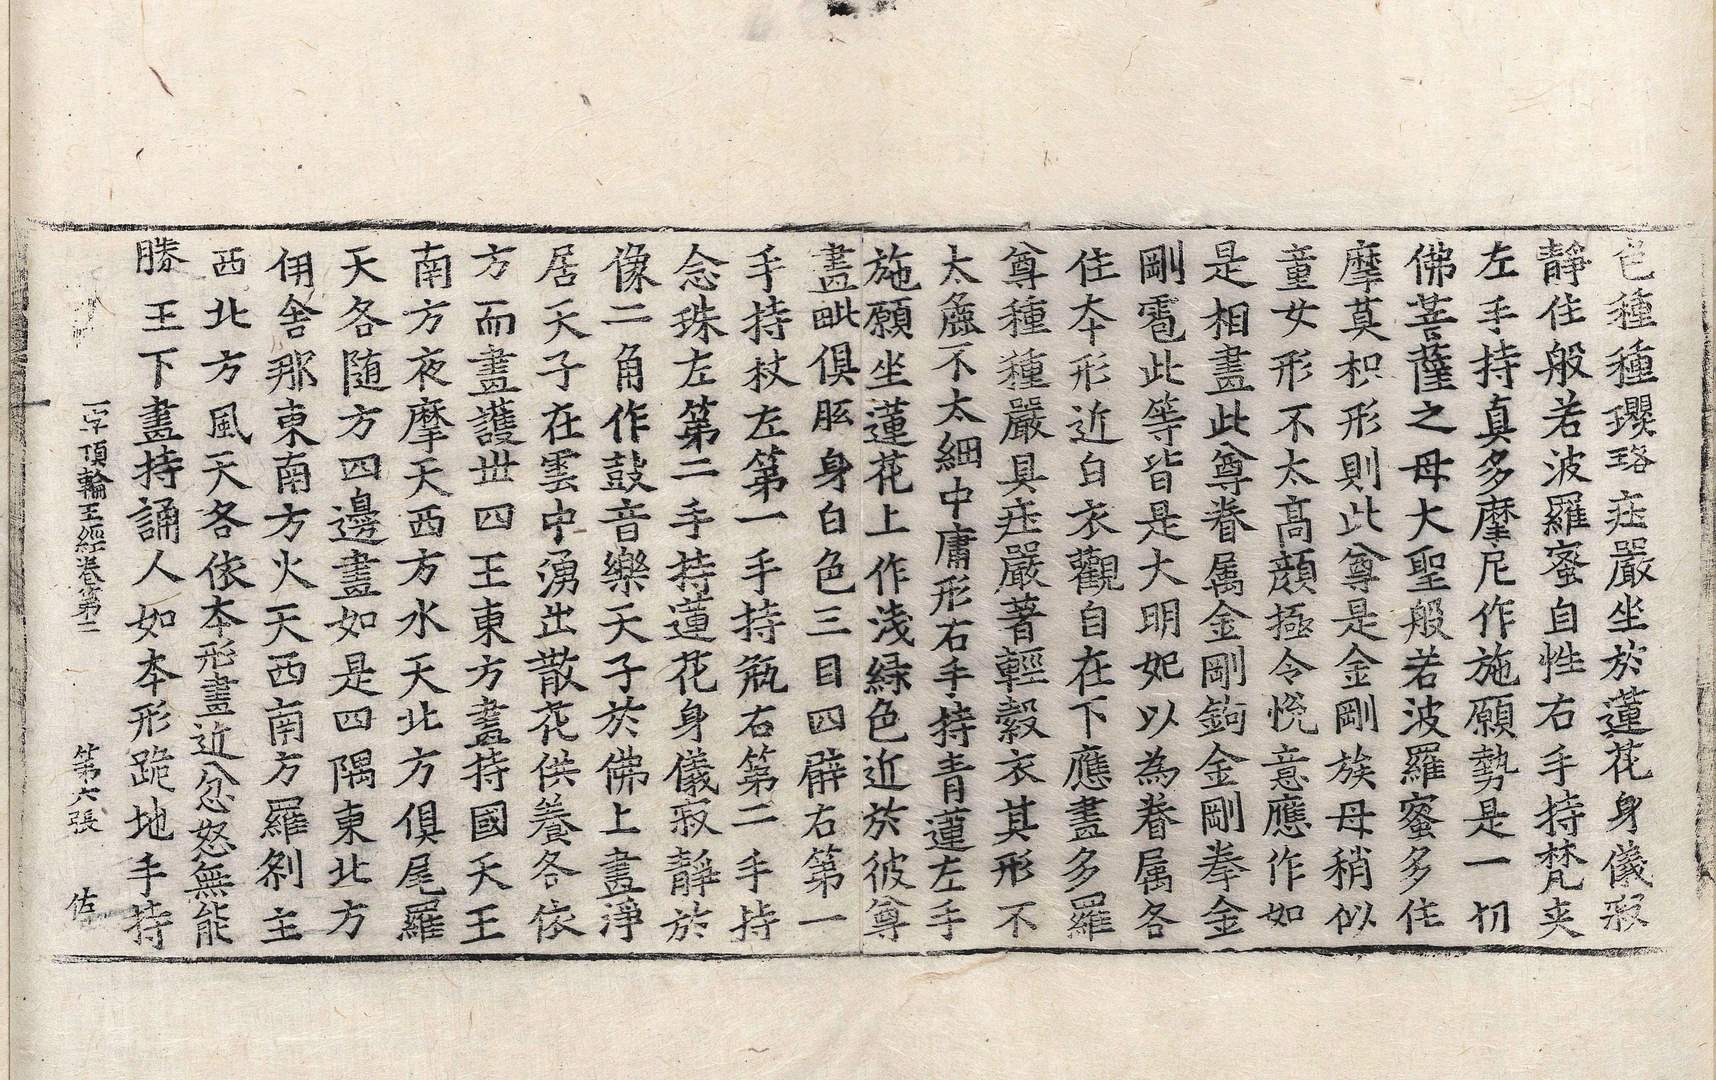 色種種瓔珞庄嚴坐於蓮花身儀寂
靜住般若波羅蜜自性右手持梵夾
左手持真多摩尼作施願勢是一切
佛菩薩之母大聖般若波羅蜜多住
摩莫枳形則此尊是金剛族母稍似
童女形不太高顔極令悅意應作如
是相畫此尊眷属金剛鉤金剛拳金
剛雹此等皆是大明妃以為眷属各
住本形近白衣觀自在下應畫多羅
尊種種嚴具庄嚴著輕縠衣其形不
太麁不太細中庸形右手持青蓮左手
施願坐蓮花上作淺緑色近於彼尊
畫毗俱胝身白色三目四臂右第一
手持杖左第一手持瓶右第二手持
念珠左第二手持蓮花身儀寂靜於
像二角作鼓音樂天子於佛上畫淨
居天子在雲中湧出散花供養各依
方而畫護世四王東方畫持國天王
南方夜摩天西方水天北方俱尾羅
天各随方四邊畫如是四隅東北方
伊舎那東南方火天西南方羅刹主
西北方風天各依本形畫近忿怒無能
勝王下畫持誦人如本形跪地手持
一字頂輪王經卷第二 第六張 佐